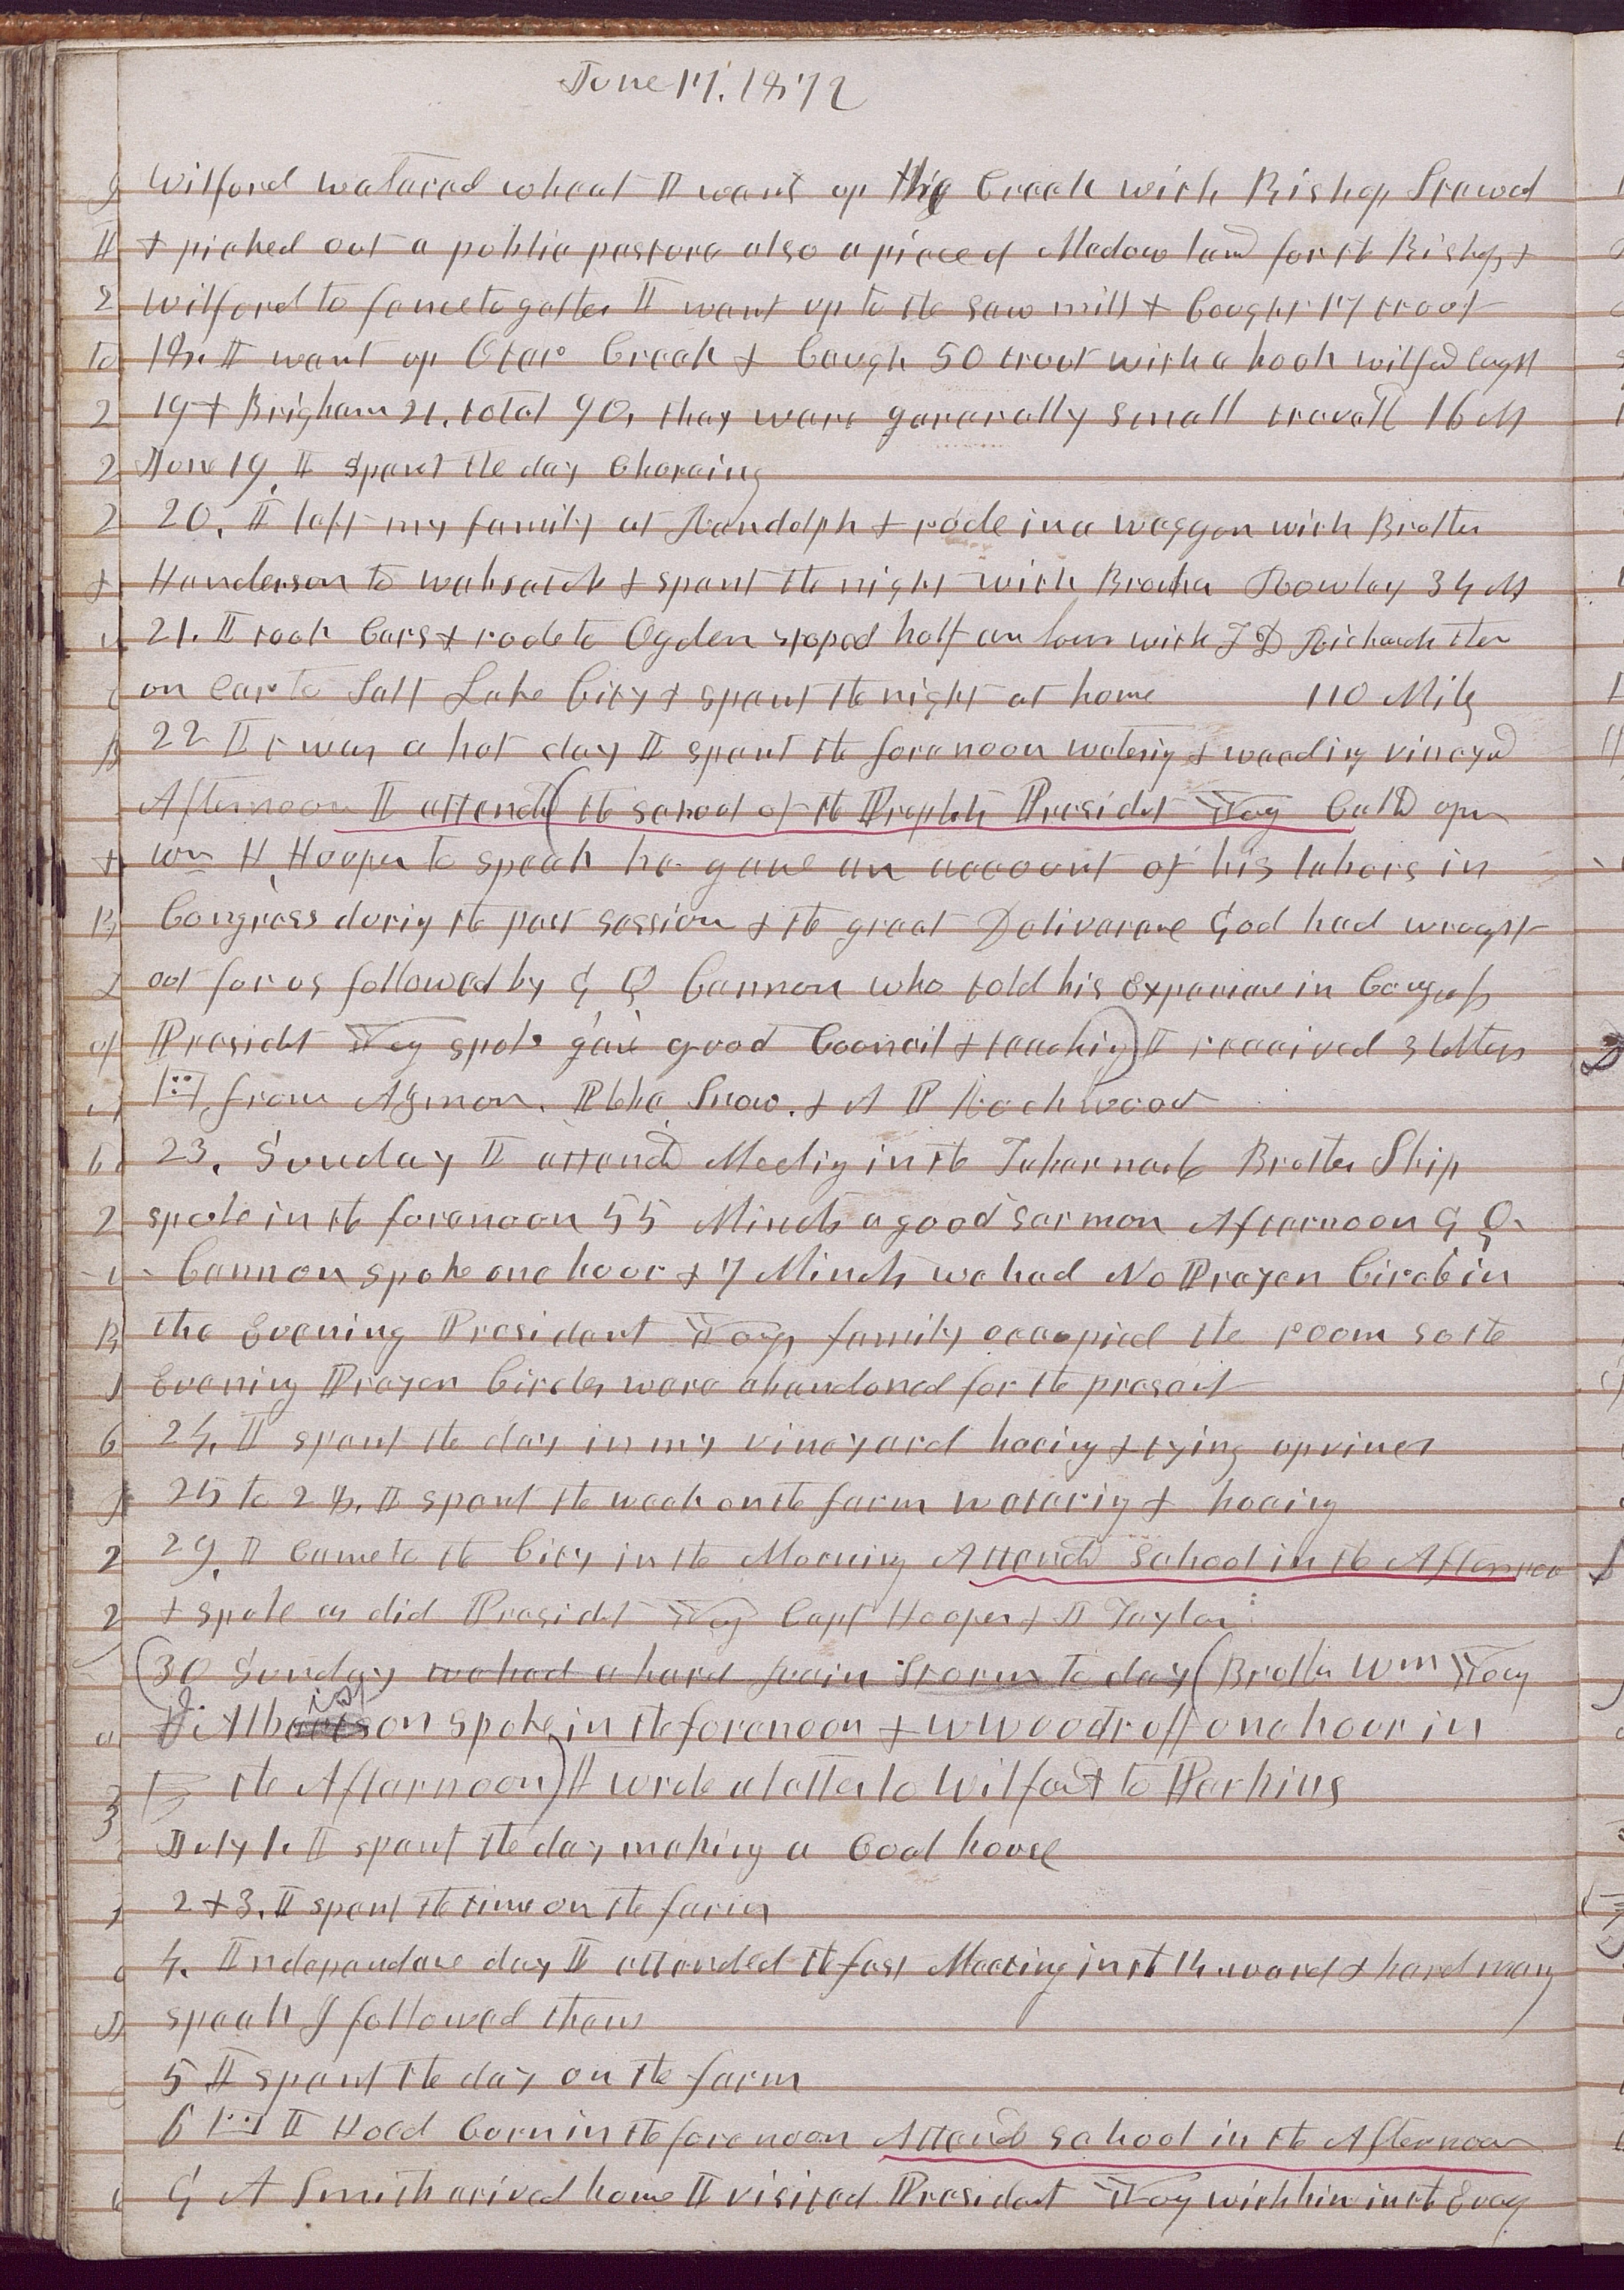 June 17. 1872
Wilford watered wheat I went up the Creek with Bishop Steward
& picked out a publie pasture also a piece of Medow land for the Bishop &
Wilford to fence togather I went up to the saw mill & Caught 17 trout
18. I went up Otter Creek & Caugh 50 trout with a hook wilford Caught
19 & Brigham 21. total 90, they were generally small travelld 16 M
June 19. I spent the day Choreing
20. I left my family at Randolph & rode in a waggon with Brother
Henderson to wahsatch & spent the night with Brother Rowley 34 M
21. I took Cars & rode to Ogden stoped half an hour with F D Richards then
on Car to Salt Lake City & spent the night at home 110 Miles
22 It was a hot day I spent the forenoon watering & weeding vineyard
Afternoon I attended (the school of the Prophets President Young Calld upon
Wm H. Hooper to speak he gave an account of his labors in
Congress during the past session & the great Deliverance God had wraught
out for us followed by G Q Cannon who told his Experience in Congress
President Young spoke gave good Council & teaching) I received 3 letters
from Azmon. Phebe Snow. & A P Rockwood
23. Sunday I attended Meeting in the Tabernacle Brother Ship
spoke in the forenoon 55 Minuts a good sermon Afternoon G Q.
Cannon spoke one hour & 7 Minuts we had No Prayer Circle in
the Evening President Youngs family occupied the room so the
Evening Prayer Circles were abandoned for the present
24. I spent the day in my vineyard hoeing & tying up vines
25 to 28. I spent the week on the farm watering & hoeing
29. I Came to the City in the Morning Attended School in the Afternoon
& spoke as did President Young Capt Hooper & J Taylor
(30 Sunday we had a hard rain Storm to day (Brother Wm Young
on spoke in the forenoon & W Woodruff one hour in
the Afternoon) I wrote a letter to Wilford & to Perkins
July 1. I spent the day making a Coal house
2 & 3. I spent the time on the farm
4. Independance day I attended the fast Meeting in the 14 ward & heard many
speak I followed them
5 I spent the day on the farm
6 I Hoed Corn in the forenoon Attended school in the Afternoon
G A Smith arived home I visited President Young with him in the Evening